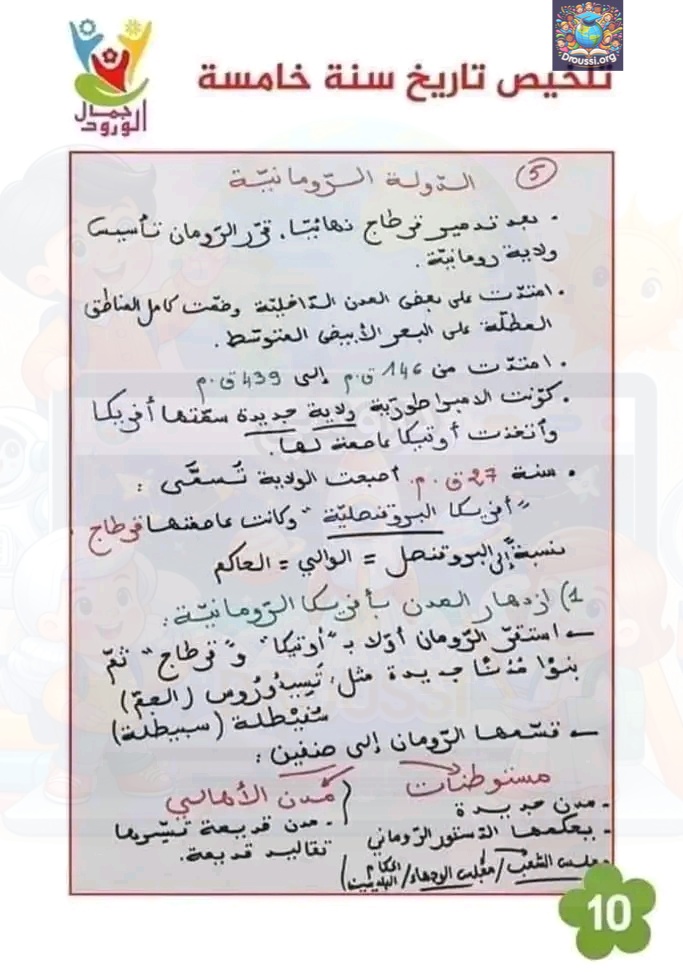 Droussi.org
تلخيص تاريخ سنة خامسة
جمال
الورود
5 الدولة الرّومانيّة
• بعد تدمير قرطاج نهائيّا، قرّر الرّومان تأسيس
ولاية رومانيّة.
• امتدّت على بعض المدن الدّاخليّة وضمّت كامل المناطق
المطلّة على البحر الأبيض المتوسّط.
• امتدّت من 146 ق.م إلى 439 ق.م
• كوّنت الامبراطوريّة ولاية جديدة سمّتها أفريكا
وأتخذت أوتيكا عاصمة لها.
• سنة 27 ق.م. أصبحت الولاية تُسمَّى :
"أفريكا البروقنصليّة" وكانت عاصمتها قرطاج.
نسبةً إلى البروقنصل = الوالي = الحاكم
1) ازدهار المدن بأفريكا الرّومانيّة:
← استقرّ الرّومان أوّلا بـ "أوتيكا" و"قرطاج" ثمّ
بنوْا مُدُنًا جديدة مثل، تَيسِدْرُوس (الجمّ)
سُفَيْطلة (سبيطلة)
← قسّمها الرّومان إلى صنفين:
مستوطنات
مُدن الأهالي
- مدن جديدة
- يحكمها الدّستور الرّوماني
مجلس الشّعب/ مجلس الوجهاء/ الحكّام البلديّين)
- مدن قديمة تسيّرها
تقاليد قديمة.
DROUSSI
10